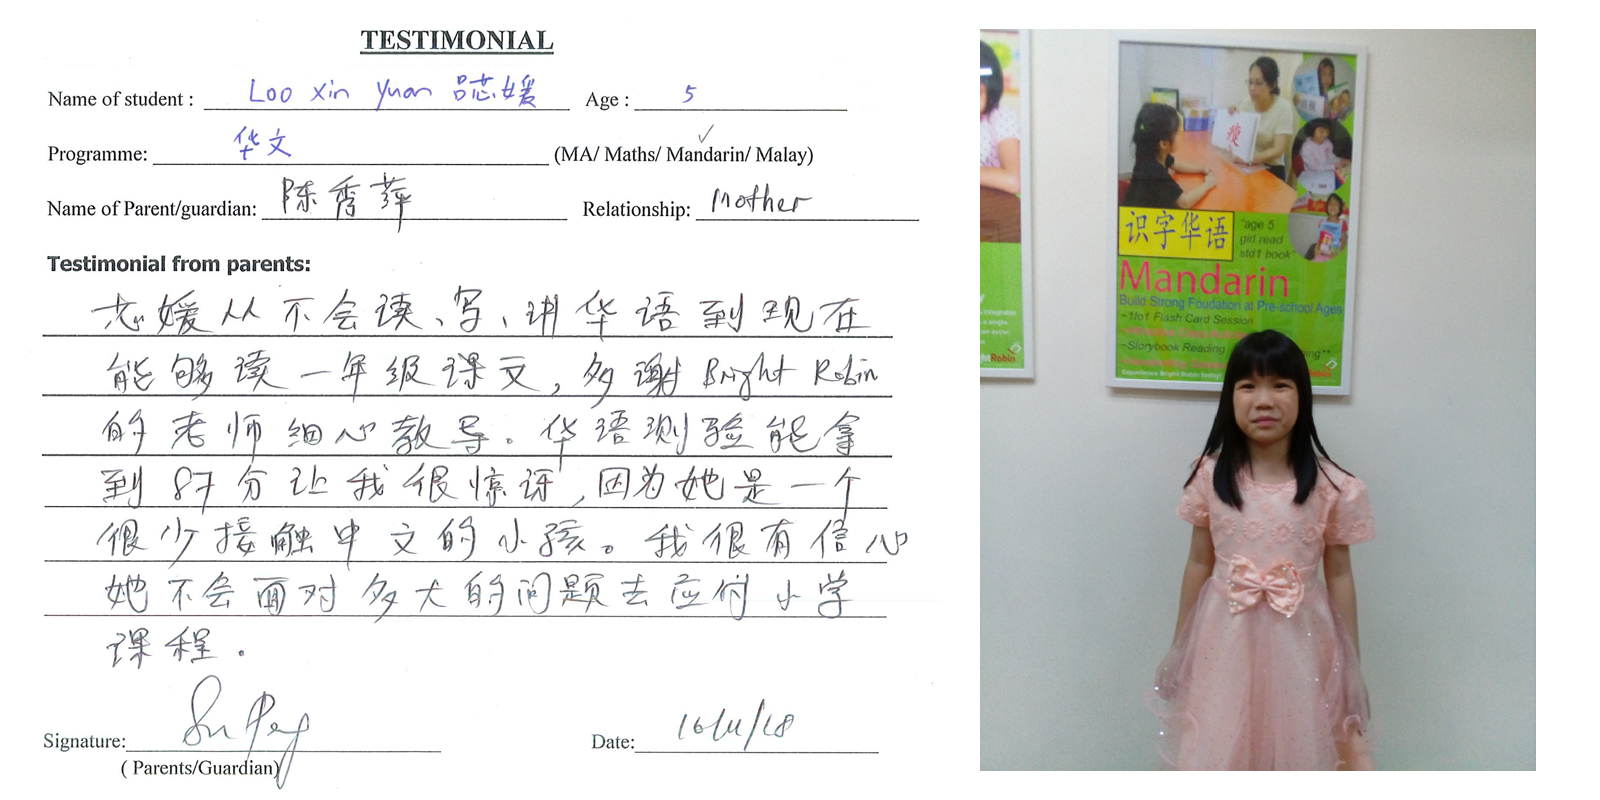 TESTIMONIAL
Name of student : Loo Xin Yuan 吕芯媛 Age : 5
Programme: 华文 (MA/ Maths/ Mandarin/ Malay)
Name of Parent/guardian: 陈秀萍 Relationship: Mother
Testimonial from parents:
芯媛从不会读、写、讲华语到现在
能够读一年级课文，多谢 Bright Robin
的老师细心教导。华语测验能拿
到 87 分让我很惊讶，因为她是一个
很少接触中文的小孩。我很有信心
她不会面对多大的问题去应付小学
课程．
Signature:
( Parents/Guardian)
Date: 16/11/18
识字华语
"age 5
girl read
std1 book"
Mandarin
Build Strong Foudation at Pre-school Ages
~1to1 Flash Card Session
~Storybook Reading
Experience Bright Robin today!
Robin